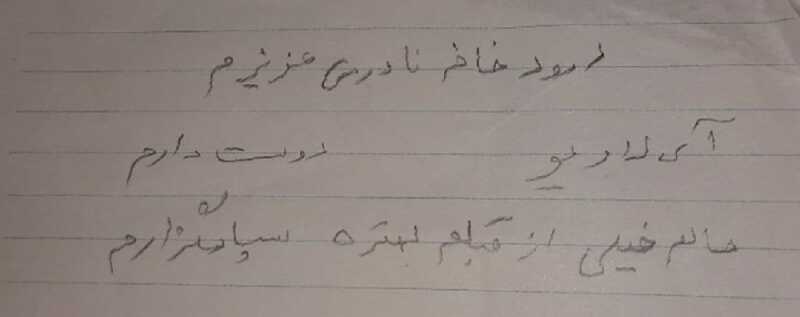 درود خانم نادری عزیزم
آی لاو یو دوست دارم
حالم خیلی از قبلم بهتره سپاسگزارم